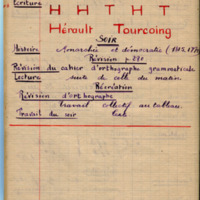 Ecriture
H H T H T
Hérault Tourcoing
SOIR
Histoire Monarchie et démocratie (1715.1774)
Révision p. 221
Révision du cahier d'orthographe grammaticale
Lecture suite de celle du matin.
Récréation
Révision d'orthographe
Travail collectif au tableau.
Travail du soir